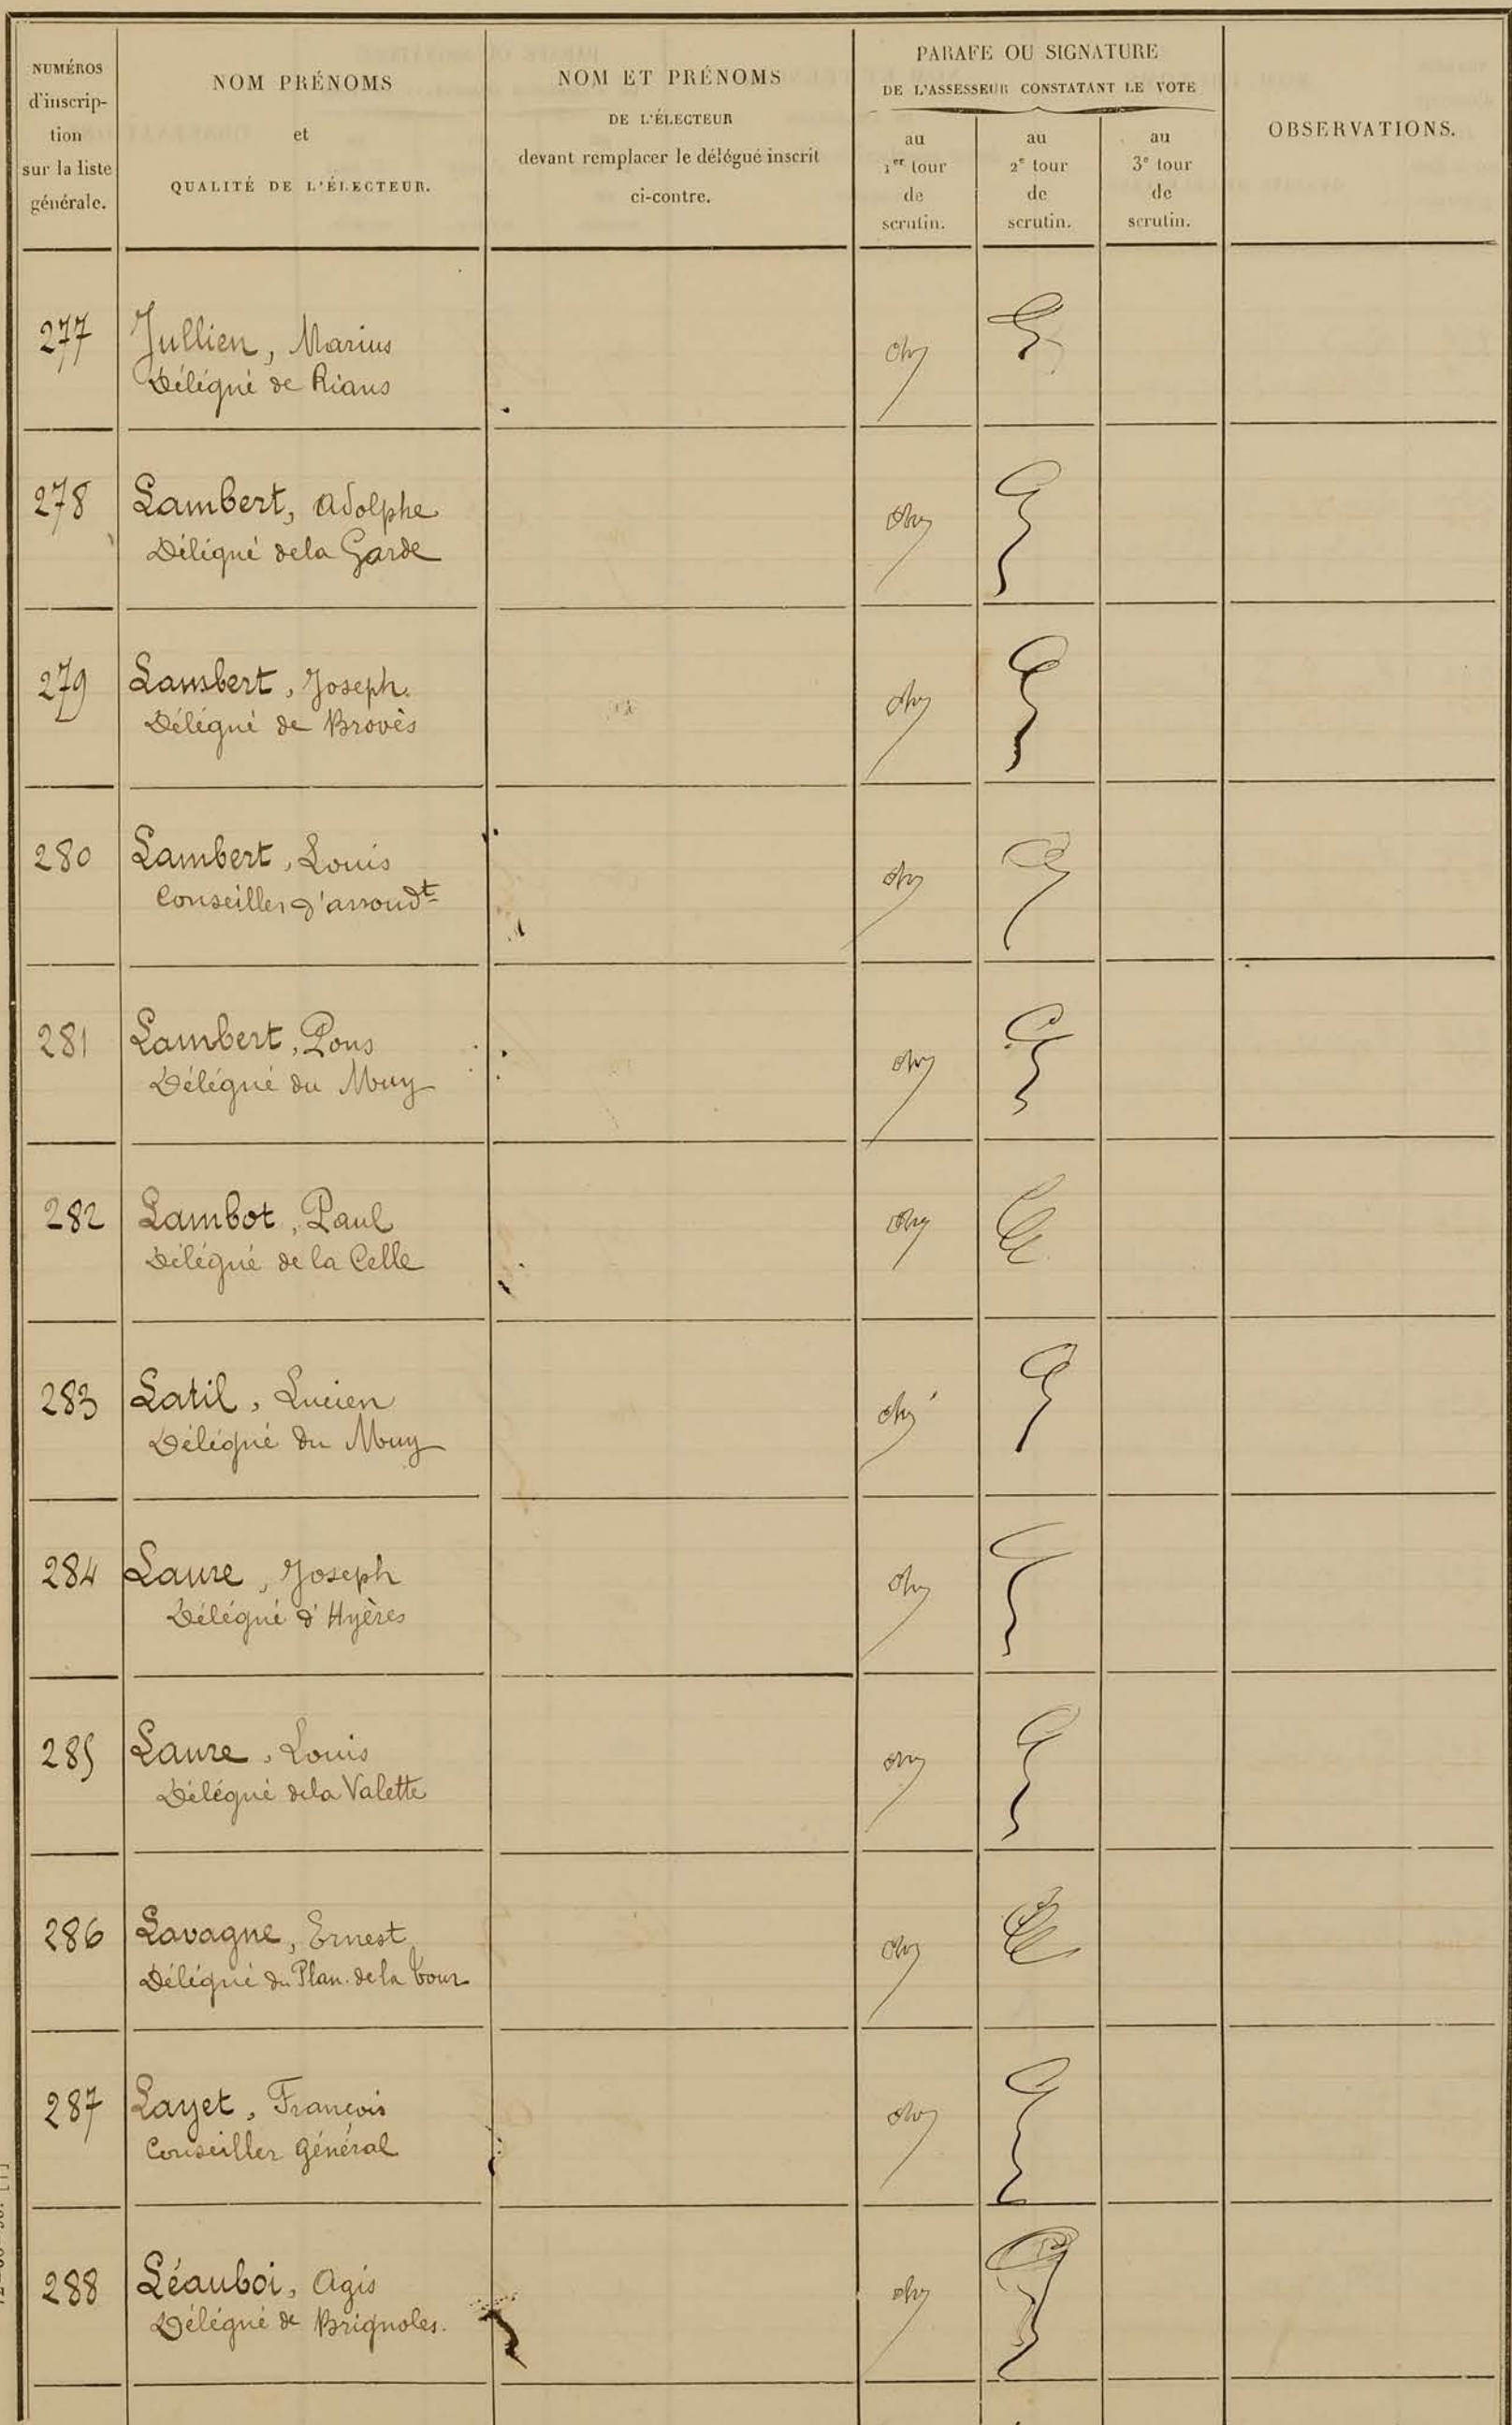 NUMÉROS
d'inscrip-
tion
sur la liste
générale.
NOM PRÉNOMS
et
QUALITÉ DE L'ÉLECTEUR.
NOM ET PRÉNOMS
DE L'ÉLECTEUR
devant remplacer le délégué inscrit
ci-contre.
PARAFE OU SIGNATURE
DE L'ASSESSEUR CONSTATANT LE VOTE
au
1er tour
de
scrutin.
au
2e tour
de
scrutin.
au
3e tour
de
scrutin.
OBSERVATIONS.
277 Jullien, Marius
Délégué de Rians
278 Lambert, Adolphe
Délégué de la Garde
279 Lambert, Joseph
Délégué de Brovès
280 Lambert, Louis
Conseiller d'arrondt
281 Lambert, Pons
Délégué du Muy
282 Lambot, Paul
Délégué de la Celle
283 Latil, Lucien
Délégué du Muy
284 Laure, Joseph
Délégué d'Hyères
285 Laure, Louis
Délégué de la Valette
286 Lavagne, Ernest
Délégué du Plan-de-la Tour
287 Layet, François
Conseiller général
288 Léauboi, Agis
Délégué de Brignoles.